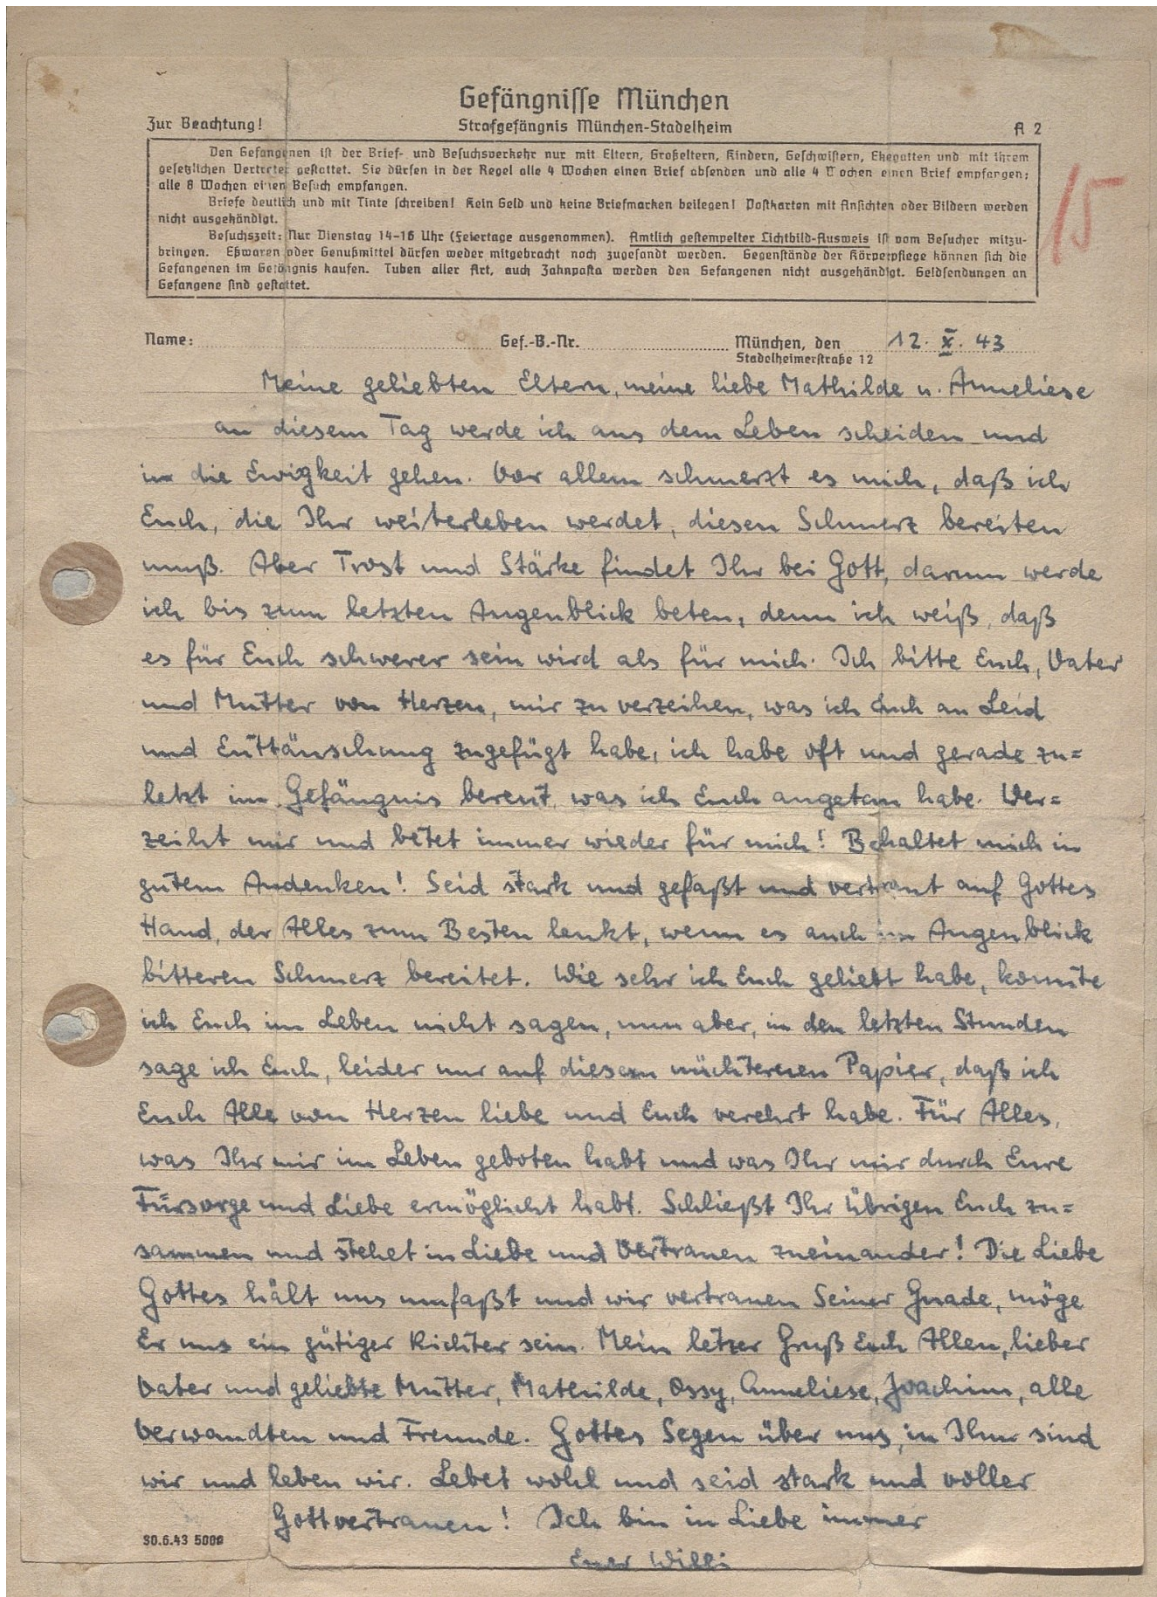 Gefängnisse München
Zur Beachtung!
Strafgefängnis München-Stadelheim
A 2
Den Gefangenen ist der Brief- und Besuchsverkehr nur mit Eltern, Großeltern, Kindern, Geschwistern, Ehegatten und mit ihrem
gesetzlichen Vertreter gestattet. Sie dürfen in der Regel alle 4 Wochen einen Brief absenden und alle 4 Wochen einen Brief empfangen;
alle 8 Wochen einen Besuch empfangen.
Briefe deutlich und mit Tinte schreiben! Kein Geld und keine Briefmarken beilegen! Postkarten mit Ansichten oder Bildern werden
nicht ausgehändigt.
Besuchszeit: Nur Dienstag 14-16 Uhr (Feiertage ausgenommen). Amtlich gestempelter Lichtbild-Ausweis ist vom Besucher mitzu-
bringen. Eßwaren oder Genußmittel dürfen weder mitgebracht noch zugesandt werden. Gegenstände der Körperpflege können sich die
Gefangenen im Gefängnis kaufen. Tuben aller Art, auch Zahnpasta werden den Gefangenen nicht ausgehändigt. Geldsendungen an
Gefangene sind gestattet.
15
Name: Gef.-B.-Nr. München, den 12. X. 43
Stadelheimerstraße 12
Meine geliebten Eltern, meine liebe Mathilde u. Anneliese
an diesem Tag werde ich aus dem Leben scheiden und
in die Ewigkeit gehen. Vor allem schmerzt es mich, daß ich
Euch, die Ihr weiterleben werdet, diesen Schmerz bereiten
muß. Aber Trost und Stärke findet Ihr bei Gott, darum werde
ich bis zum letzten Augenblick beten, denn ich weiß, daß
es für Euch schwerer sein wird als für mich. Ich bitte Euch, Vater
und Mutter von Herzen, mir zu verzeihen, was ich Euch an Leid
und Enttäuschung zugefügt habe, ich habe oft und gerade zu=
letzt im Gefängnis bereut, was ich Euch angetan habe. Ver=
zeiht mir und betet immer wieder für mich! Behaltet mich in
gutem Andenken! Seid stark und gefaßt und vertraut auf Gottes
Hand, der Alles zum Besten lenkt, wenn es auch im Augenblick
bitteren Schmerz bereitet. Wie sehr ich Euch geliebt habe, konnte
ich Euch im Leben nicht sagen, nun aber, in den letzten Stunden
sage ich Euch, leider nur auf diesem nüchternen Papier, daß ich
Euch Alle von Herzen liebe und Euch verehrt habe. Für Alles,
was Ihr mir im Leben geboten habt und was Ihr mir durch Eure
Fürsorge und Liebe ermöglicht habt. Schließt Ihr übrigen Euch zu=
sammen und stehet in Liebe und Vertrauen zueinander! Die Liebe
Gottes hält uns umfaßt und wir vertrauen Seiner Gnade, möge
Er uns ein gütiger Richter sein. Mein letzer Gruß Euch Allen, lieber
Vater und geliebte Mutter, Mathilde, Ossy, Anneliese, Joachim, alle
Verwandten und Freunde. Gottes Segen über uns, in Ihm sind
wir und leben wir. Lebet wohl und seid stark und voller
Gottvertrauen! Ich bin in Liebe immer
Euer Willi
30.6.43 5000